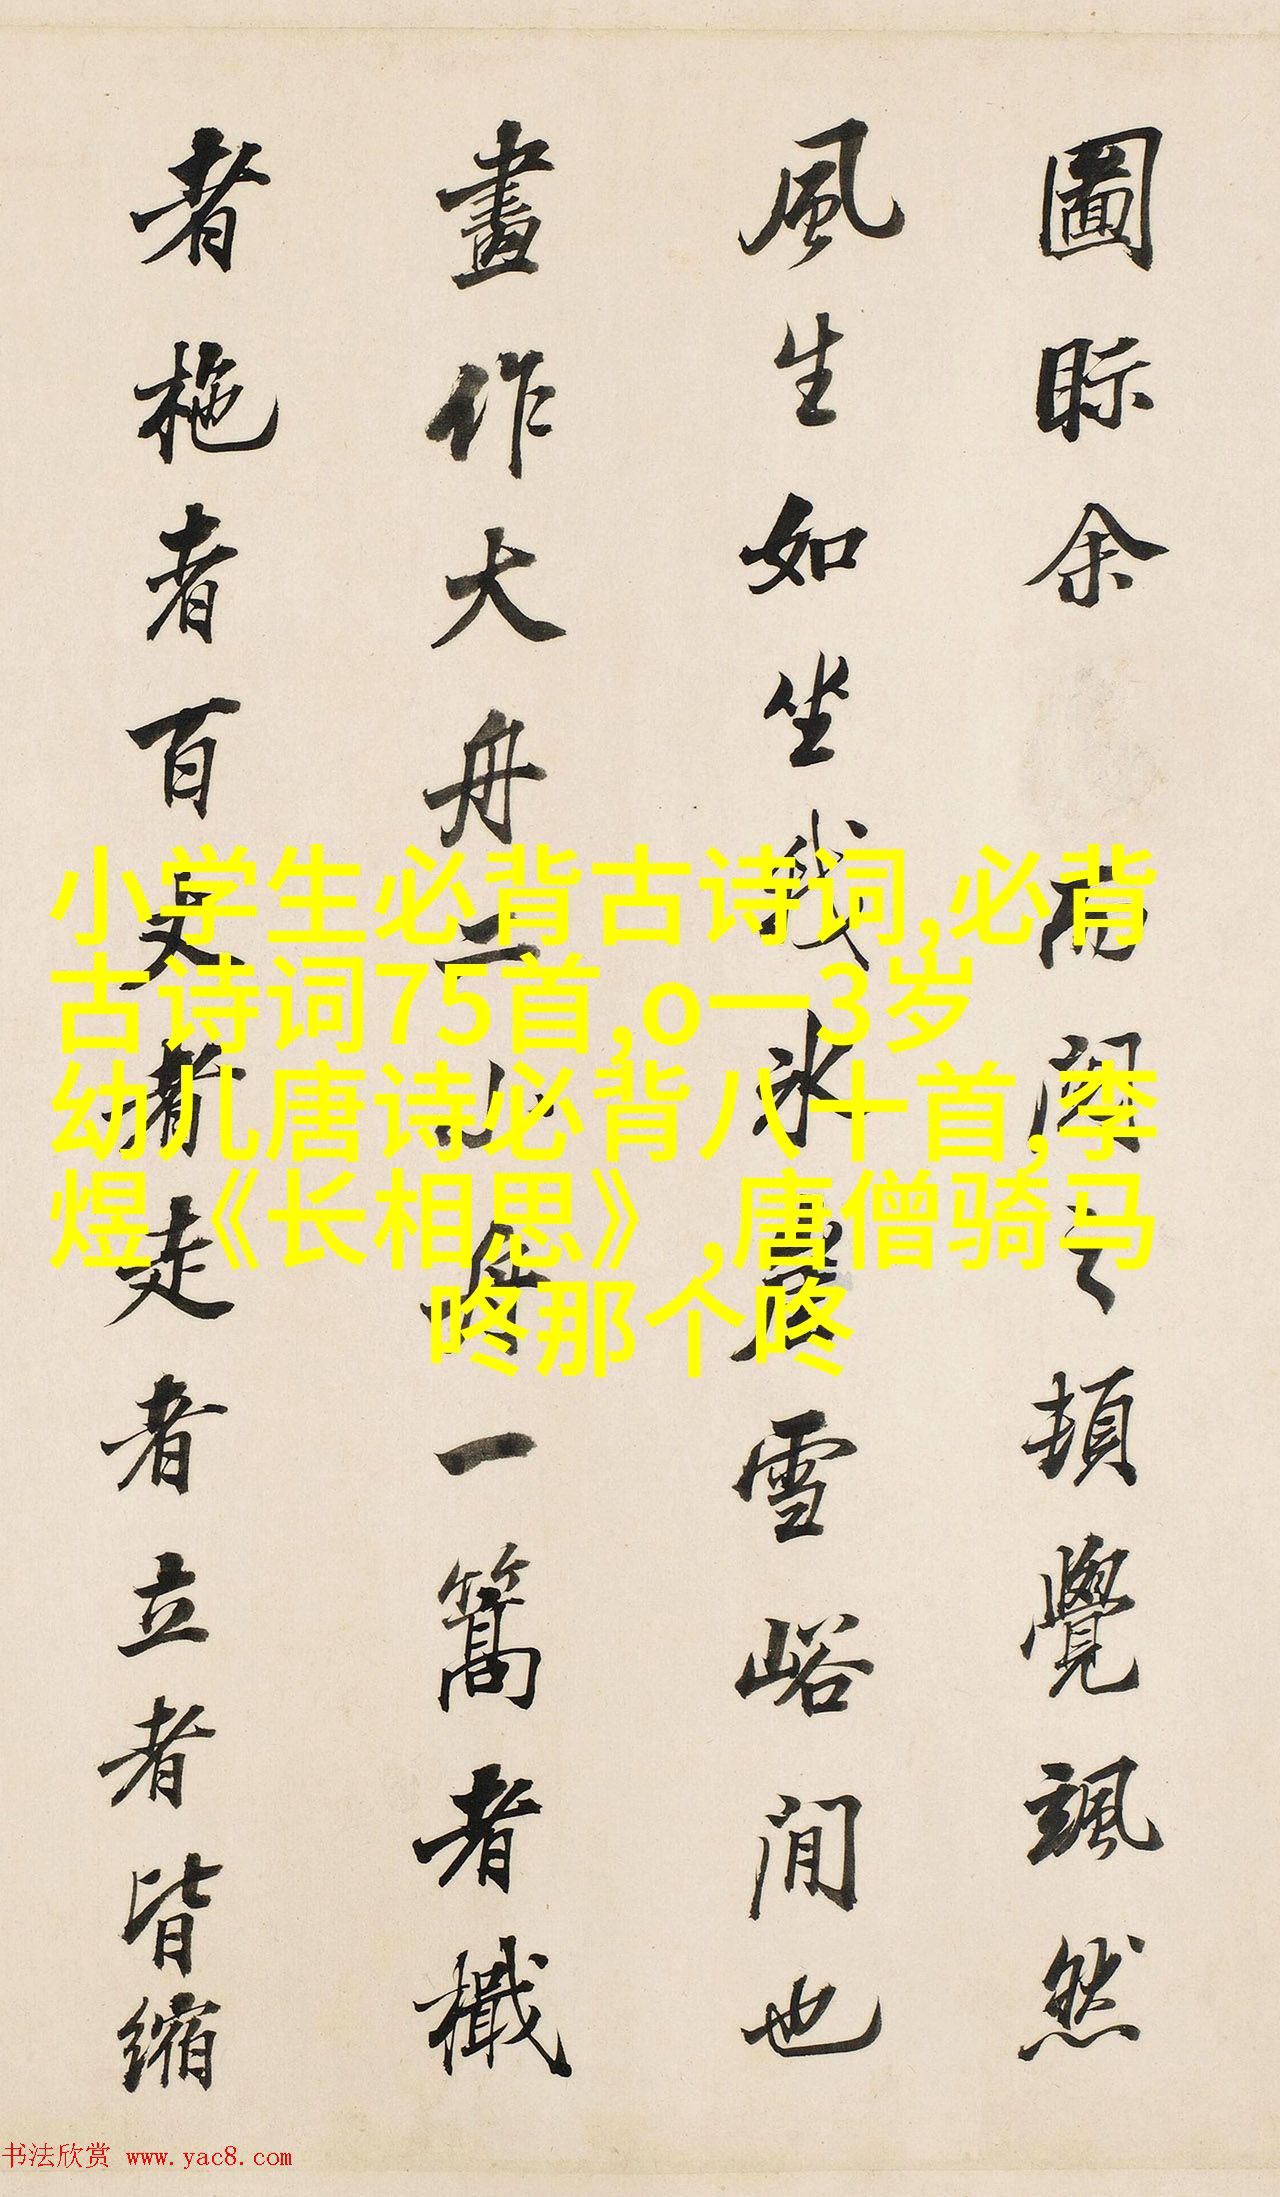 圖眎余
而閱之頓覺颯然
風生如坐我冰壑雪峪間也
畫作大舟二小舟一篙者檝
者柂者百丈者走者立者皆縮
小学生必背古诗词,必背
古诗词75首,o一3岁
幼儿唐诗必背八十首,李
煜《长相思》,唐僧骑马
咚那个咚
书法欣赏 www.yac8.com